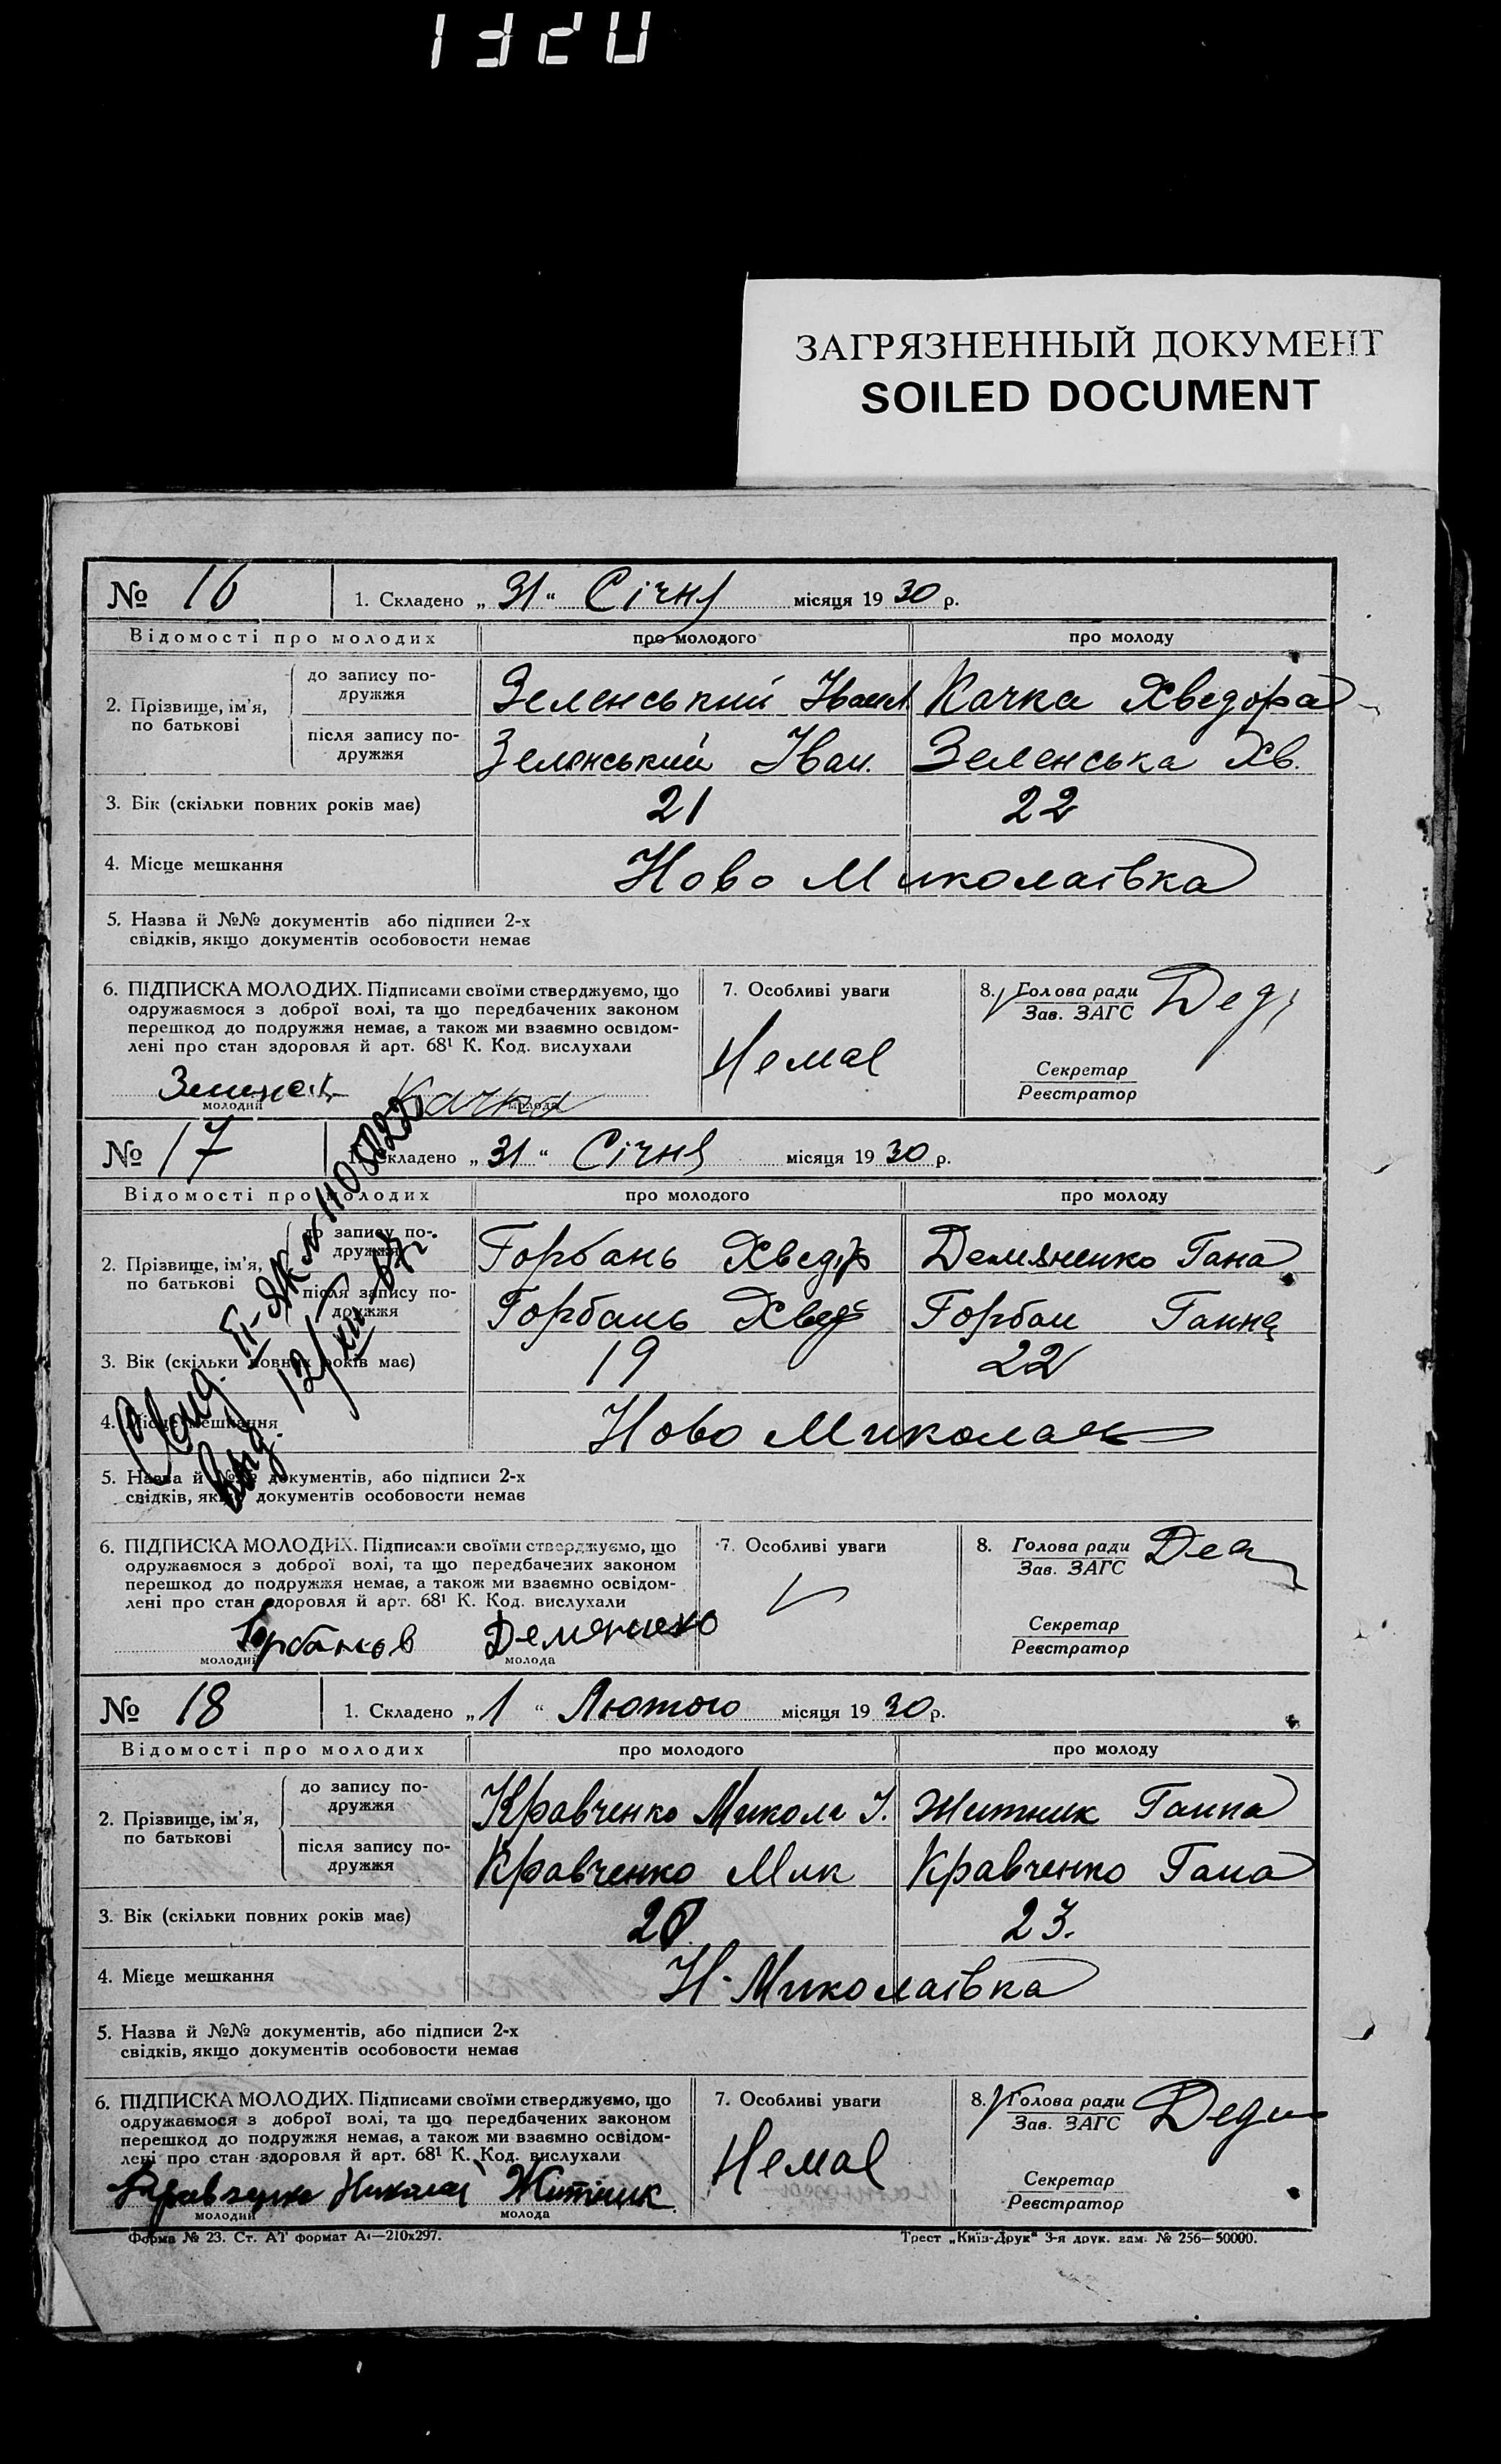 ЗАГРЯЗНЕННЫЙ ДОКУМЕНТ
SOILED DOCUMENT
№ 16 1. Складено „ 31 “ Січня місяця 19 30 р.
Відомості про молодих про молодого про молоду
2. Прізвище, ім’я, по батькові
до запису подружжя Зеленський Іван Качка Хведора
після запису подружжя Зеленський Іван. Зеленська Хв.
3. Вік (скільки повних років має) 21 22
4. Місце мешкання Ново Миколаївка
5. Назва й №№ документів або підписи 2-х
свідків, якщо документів особовости немає
6. ПІДПИСКА МОЛОДИХ. Підписами своїми стверджуємо, що
одружаємося з доброї волі, та що передбачених законом
перешкод до подружжя немає, а також ми взаємно освідом-
лені про стан здоровля й арт. 68¹ К. Код. вислухали
Качка
молодий молода
7. Особливі уваги
Немає
8. Голова ради
Зав. ЗАГС
Секретар
Реєстратор
№ 17 1. Складено „ 31 “ Січня місяця 19 30 р.
Відомості про молодих про молодого про молоду
2. Прізвище, ім’я, по батькові
до запису подружжя Горбань Хведір Демяненко Гана
після запису подружжя Горбань Хвед Горбан Ганна
3. Вік (скільки повних років має) 19 22
4. Місце мешкання Ново Микола
5. Назва й №№ документів, або підписи 2-х
свідків, якщо документів особовости немає
6. ПІДПИСКА МОЛОДИХ. Підписами своїми стверджуємо, що
одружаємося з доброї волі, та що передбачених законом
перешкод до подружжя немає, а також ми взаємно освідом-
лені про стан здоровля й арт. 68¹ К. Код. вислухали
Демяненко
молодий молода
7. Особливі уваги
8. Голова ради
Зав. ЗАГС
Секретар
Реєстратор
№ 18 1. Складено „ 1 “ Лютого місяця 19 30 р.
Відомості про молодих про молодого про молоду
2. Прізвище, ім’я, по батькові
до запису подружжя Кравченко Микола І. Житник Ганна
після запису подружжя Кравченко Мик Кравченко Гана
3. Вік (скільки повних років має) 23.
4. Місце мешкання Н-Миколаївка
5. Назва й №№ документів, або підписи 2-х
свідків, якщо документів особовости немає
6. ПІДПИСКА МОЛОДИХ. Підписами своїми стверджуємо, що
одружаємося з доброї волі, та що передбачених законом
перешкод до подружжя немає, а також ми взаємно освідом-
лені про стан здоровля й арт. 68¹ К. Код. вислухали
Житник
молодий молода
7. Особливі уваги
Немає
8. Голова ради
Зав. ЗАГС
Секретар
Реєстратор
Форма № 23. Ст. АТ формат А4—210х297. Трест „Київ-Друк“ 3-я друк. зам. № 256—50000.